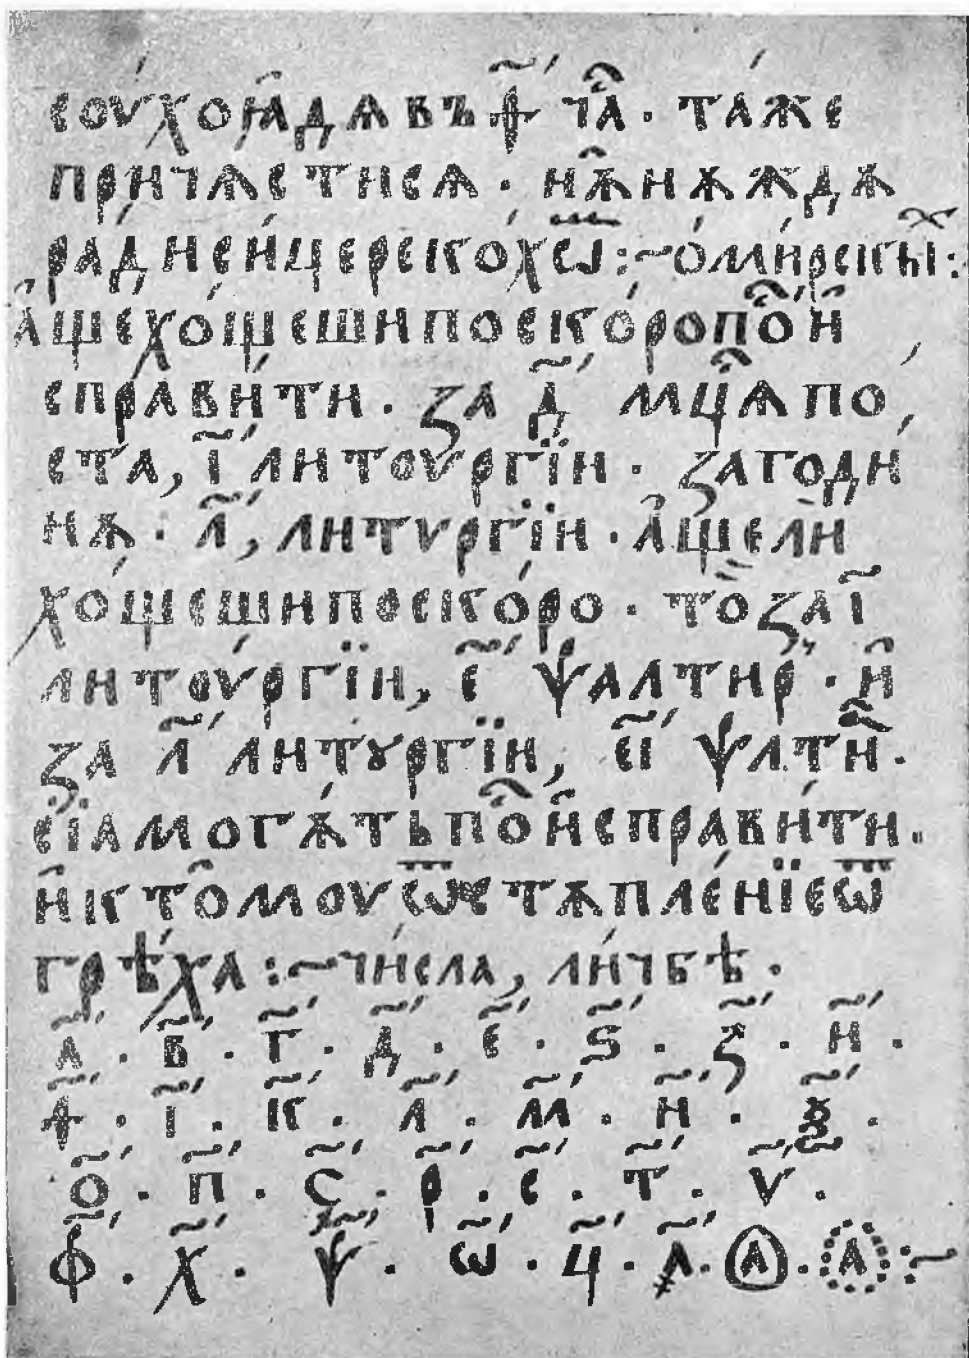 сꙋхоꙗ́дѧвъ ѳ҃ ча̑. та́же
причѧстисѧ. нѫ̑нѫжⷣѫ
ра́дисѝцерскохсѡ҃:~ о́мирскы̏:
а҆́щехо́щешипоско́ропⷪ҇и҆
спра́вити. за д҃ мцⷭ҇ѧпо
ста, і҃ литоургїи. загоди
нѫ. л҃, литѵргїи. а҆́щели
хо́щешипоско́ро. то̀заі҃
литоу́ргїи, е҃ ѱалтир. и҆
за л҃ литꙋргїи, е҃і ѱлти.
сїамогѫ́тьпⷪ҇и҆спра́вити.
и҆ктомоуѿстѫпле́нїеѿ
грѣха:~ чи́сла, ли́чбѣ.
а҃. в҃. г҃. д҃. е҃. ѕ҃. з҃. и҃.
ѳ҃. і҃. к҃. л҃. м҃. н҃. ѯ҃.
о҃. п҃. ҁ҃. р҃. с҃. т҃. ѵ҃.
ф҃. х҃. ѱ҃. ѡ҃. ц҃. ҂а҃. а⃝. а҈:~